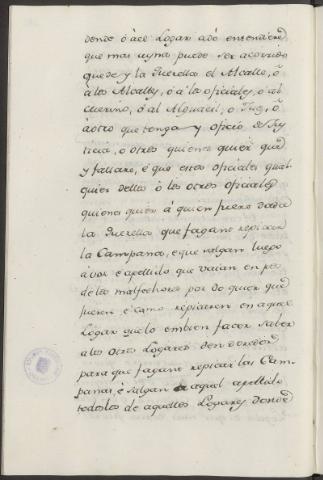 dende ò àel Logar adó entendiere
que mas ayna puede ser acorrido
que de y la Querella al Alcalle, ò
à los Alcalles, ó à los oficiales, ò al
Merino, ò al Alguacil, o Juez, ò
à otro que tenga y oficio de Jus
ticia, o otros quienes quier que
y fallare, é que estos oficiales qual
quier dellos ò los otros oficiales
quienes quier à quien fuere dada
la Querella que fagan repicar
la Campana, e que salgan luego
à voz e apellido que vaian en pos
de los malfechores por do quier que
fueren é como repicaren en aquel
Logar que lo embien facer saber
à los otros Logares den derredor
para que fagan repicar las Cam
panas, è salgan à aquel apellido
todos los de aquellos Logares donde